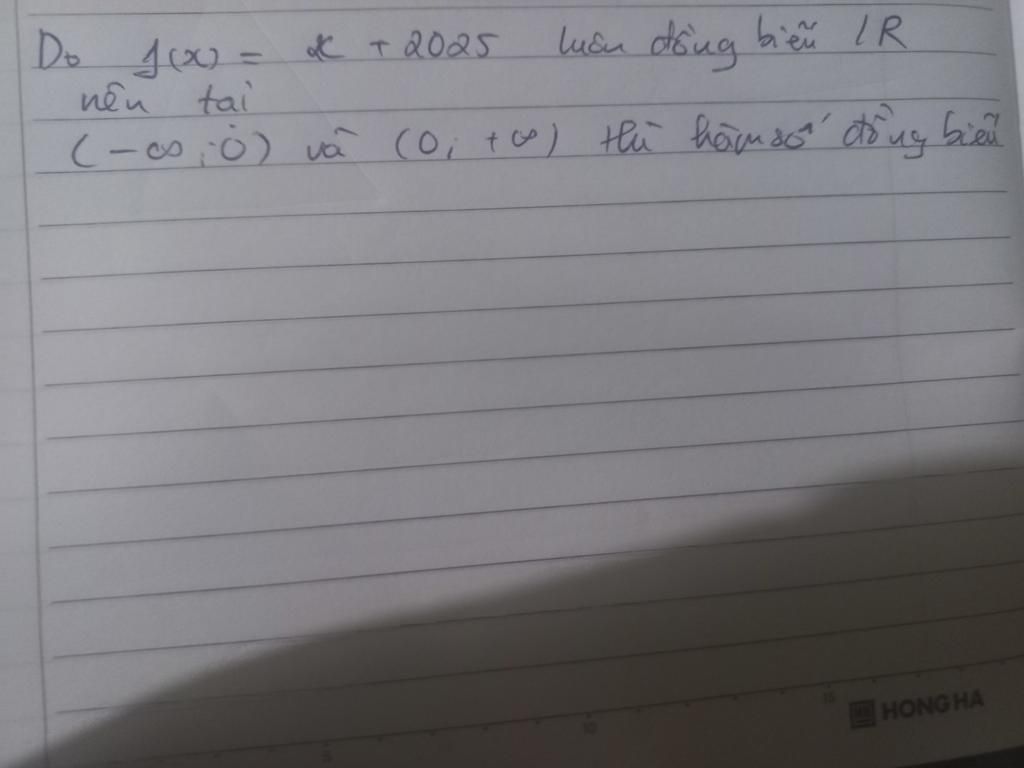 Do f(x) = x + 2025 luôn đồng biến IR
nên tại
(-∞; 0) và (0; +∞) thì hàm số đồng biến
5 10 15 HONG HA